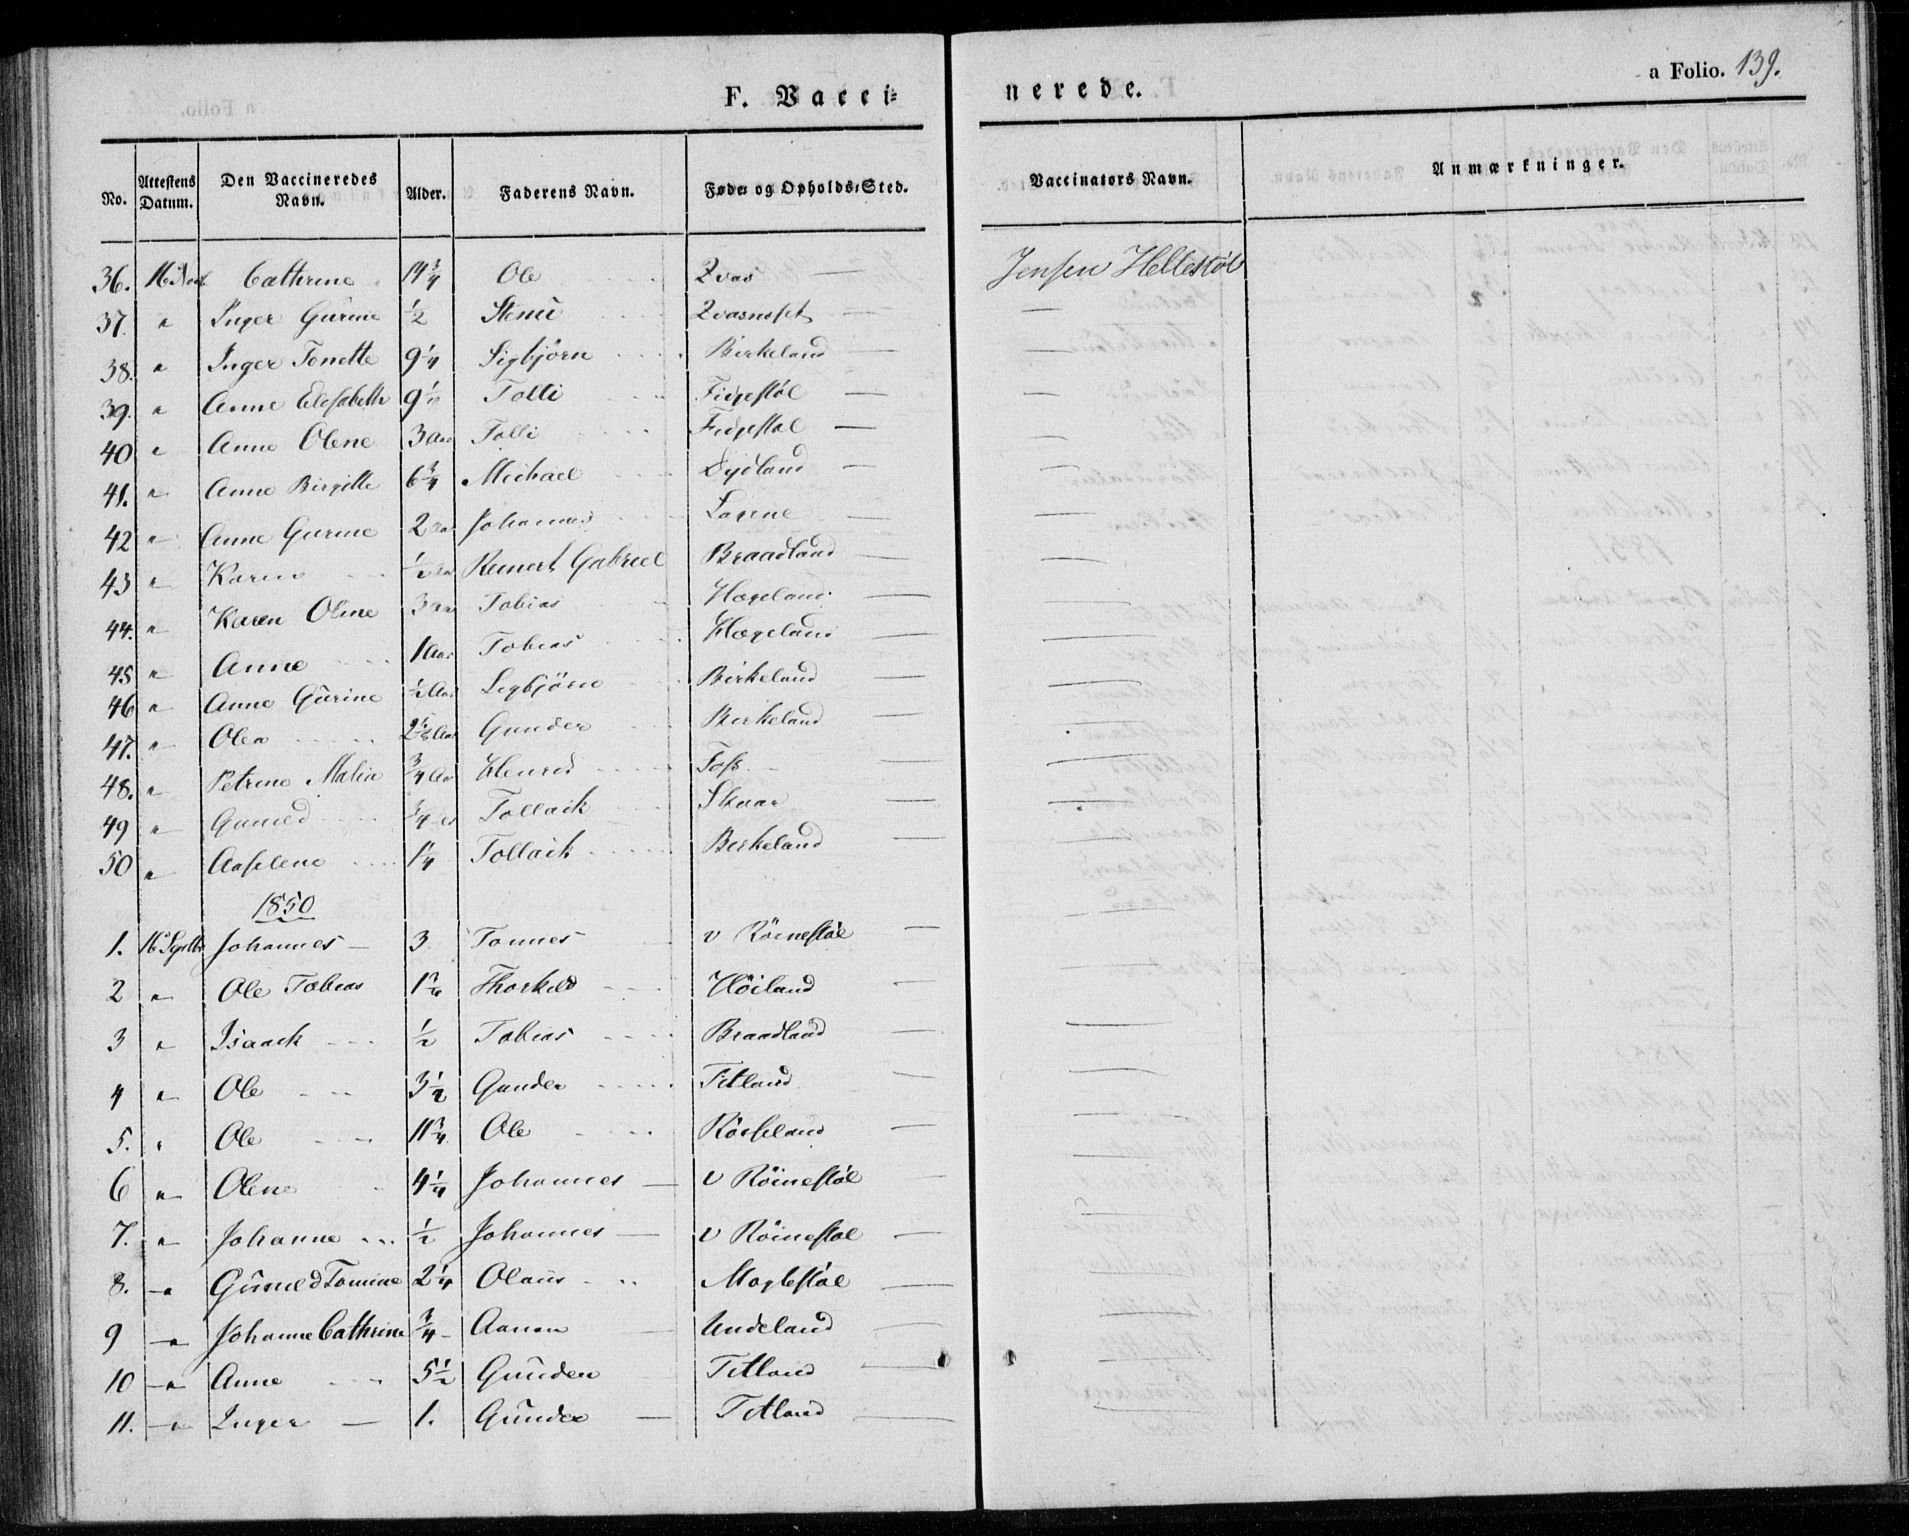 a Folio. 139.
F. Vacci=
nerede.
No. Attestens Datum. Den Vaccineredes Navn. Alder. Faderens Navn. Føde= og Opholds=Sted. Vaccinators Navn. Anmærkninger.
36. 16 Cathrine 14¾ Ole Jensen Hellestöl
37. " Inger Gurine ½
38. " Inger Tonette 9¼ Sigbjörn Birkeland —
39. " Anne Elesabeth Tolli —
40 " Anne Olene 3 Aar Tolli —
41. " Anne Birgitte 6¾ Michael Dydland —
42 " Anne Gurine 2 Johannes —
43 " Karen ½ Reinert Gabriel Braadland —
44. " Karen Oline 3 Tobias Hægeland —
45 " Anne 1 Aar Tobias Hægeland —
46 " Anne Gürine ½ Aar Sigbjörn Birkeland —
47. " Olea Gunder Birkeland —
48. " Petrine Malia ¾ Aar Foss —
49 " Guneld ¾ Tollack Skaar —
50 " Aaselene 1¼ Tollack Berkeland —
1850
1. 16 Septbr Johannes — 3 Tonnes v Röinestöl —
2 " Ole Tobias Thorkild Höiland —
3 " Isaack ½ Tobias Braadland —
4 " Ole 3½ Gunder Titland —
5. " Ole 11¾ Ole Röiseland —
6 " Olene 4¼ Johannes — v Röinestöl —
7. " Johanne ½ Johannes — v Röinestöl —
8. " Güneld Tomine 2¼ Olaüs Moglestöl —
9 " Johanne Cathrine ¾ Aanon Undeland —
10 " Anne 5½ Günder Titland —
11. " Inger — 1. Günder — Titland —